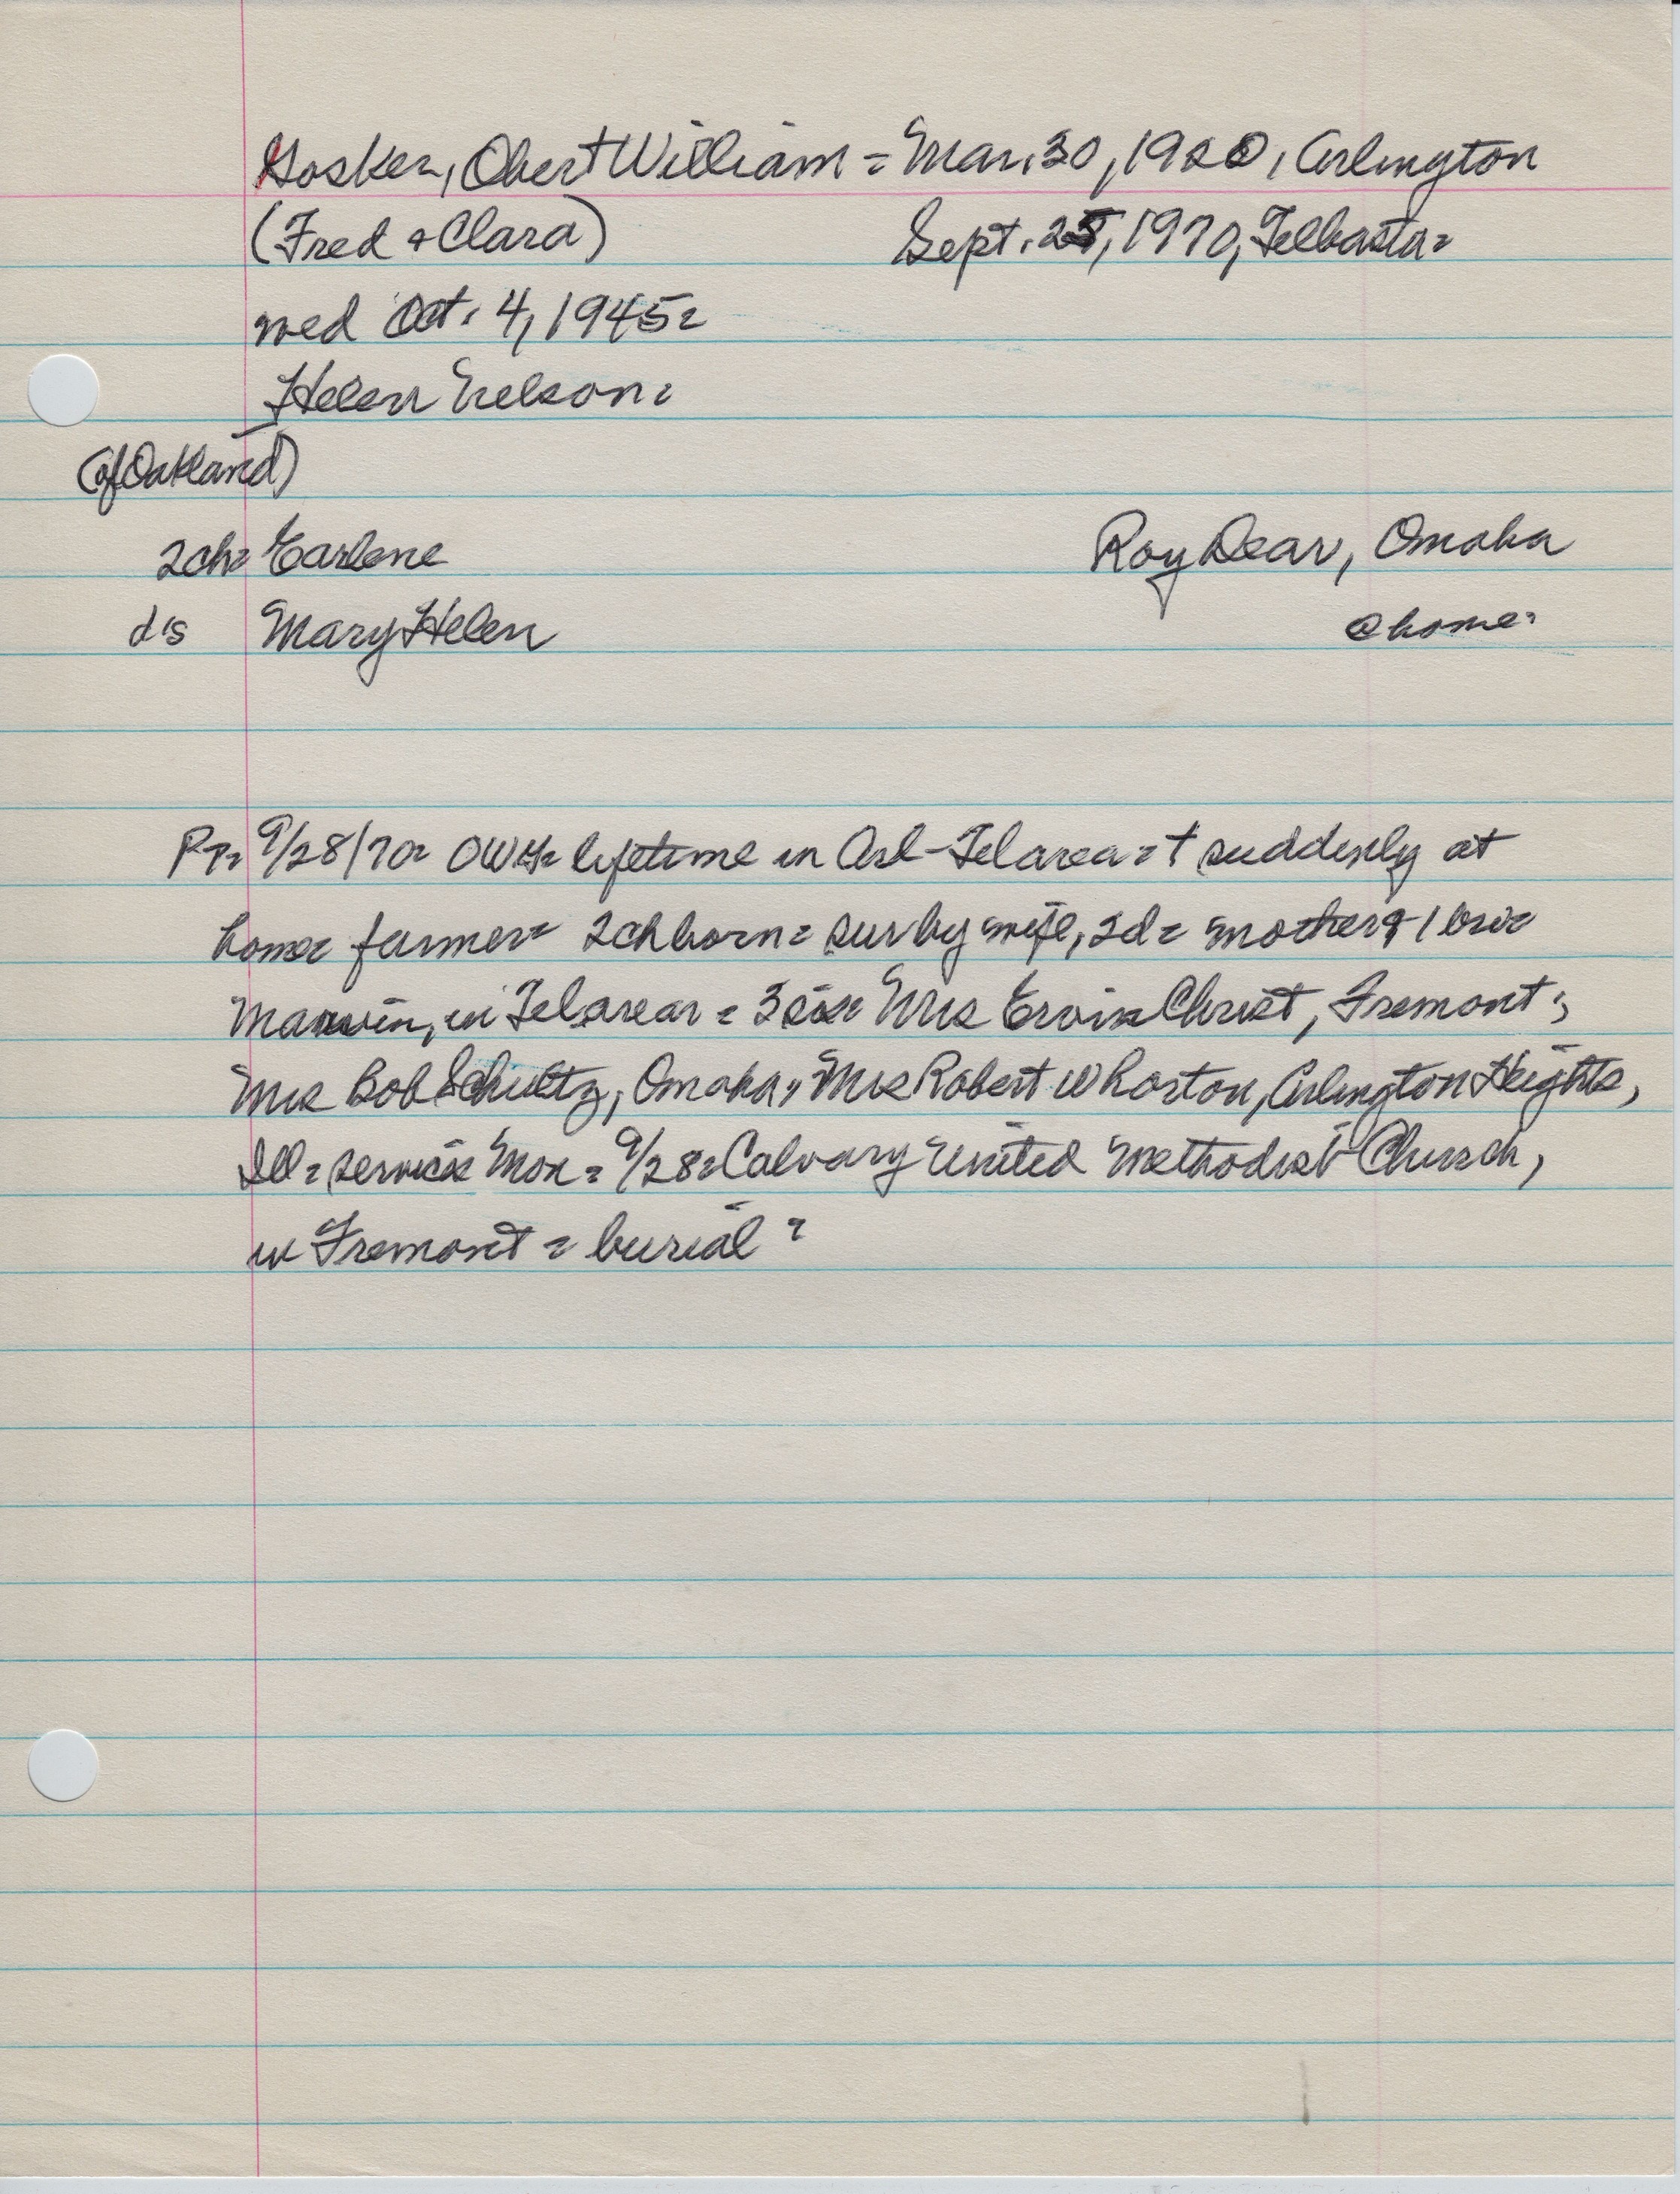 Gosker, Obert William = Mar. 30, 1920, Arlington
(Fred & Clara) Sept. 25, 1970, Telbasta=
wed Oct. 4, 1945=
Helen Nelson=
(of Oakland)
2ch= Earlene Roy Dear, Omaha
d's Mary Helen @ home=
9/28/70= OWH= lifetime in Arl-Tel area = † suddenly at
home= farmer= 2ch born= sur by wife, 2d= mother & 1 bro=
Marvin, in Tel area = 3 sis= Mrs Ervin Christ, Fremont;
Mrs Bob Schultz, Omaha, Mrs Robert Whorton, Arlington Heights,
Ill= services Mon= 9/28= Calvary United Methodist Church,
in Fremont = burial ?